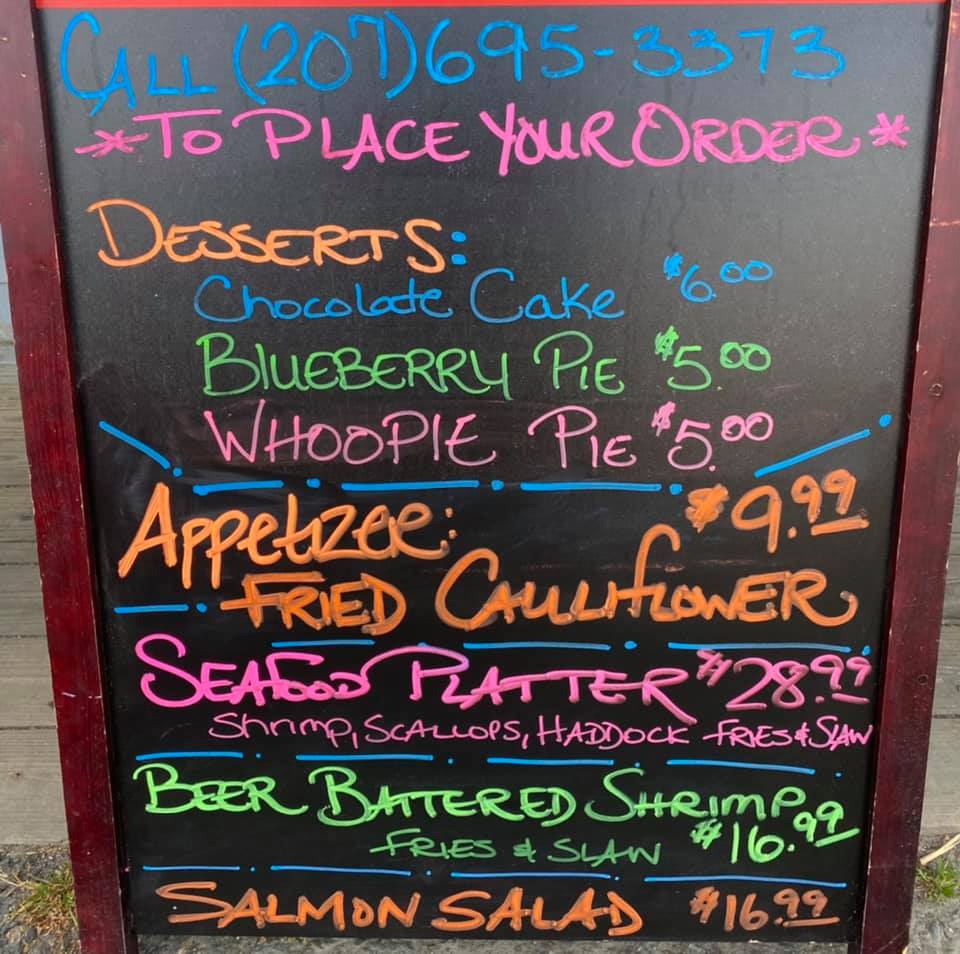 CALL (207)695-3373
*TO PLACE YOUR ORDER*
DESSERTS:
Chocolate Cake $6.00
BLUEBERRY PIE $5.00
WHOOPIE PIE $5.00
Appetizer: $9.99
FRIED CAULIFLOWER
SEAFOOD PLATTER $28.99
Shrimp, SCALLOPS, HADDOCK FRIES & SLAW
BEER BATTERED SHRIMP
FRIES & SLAW $16.99
SALMON SALAD $16.99